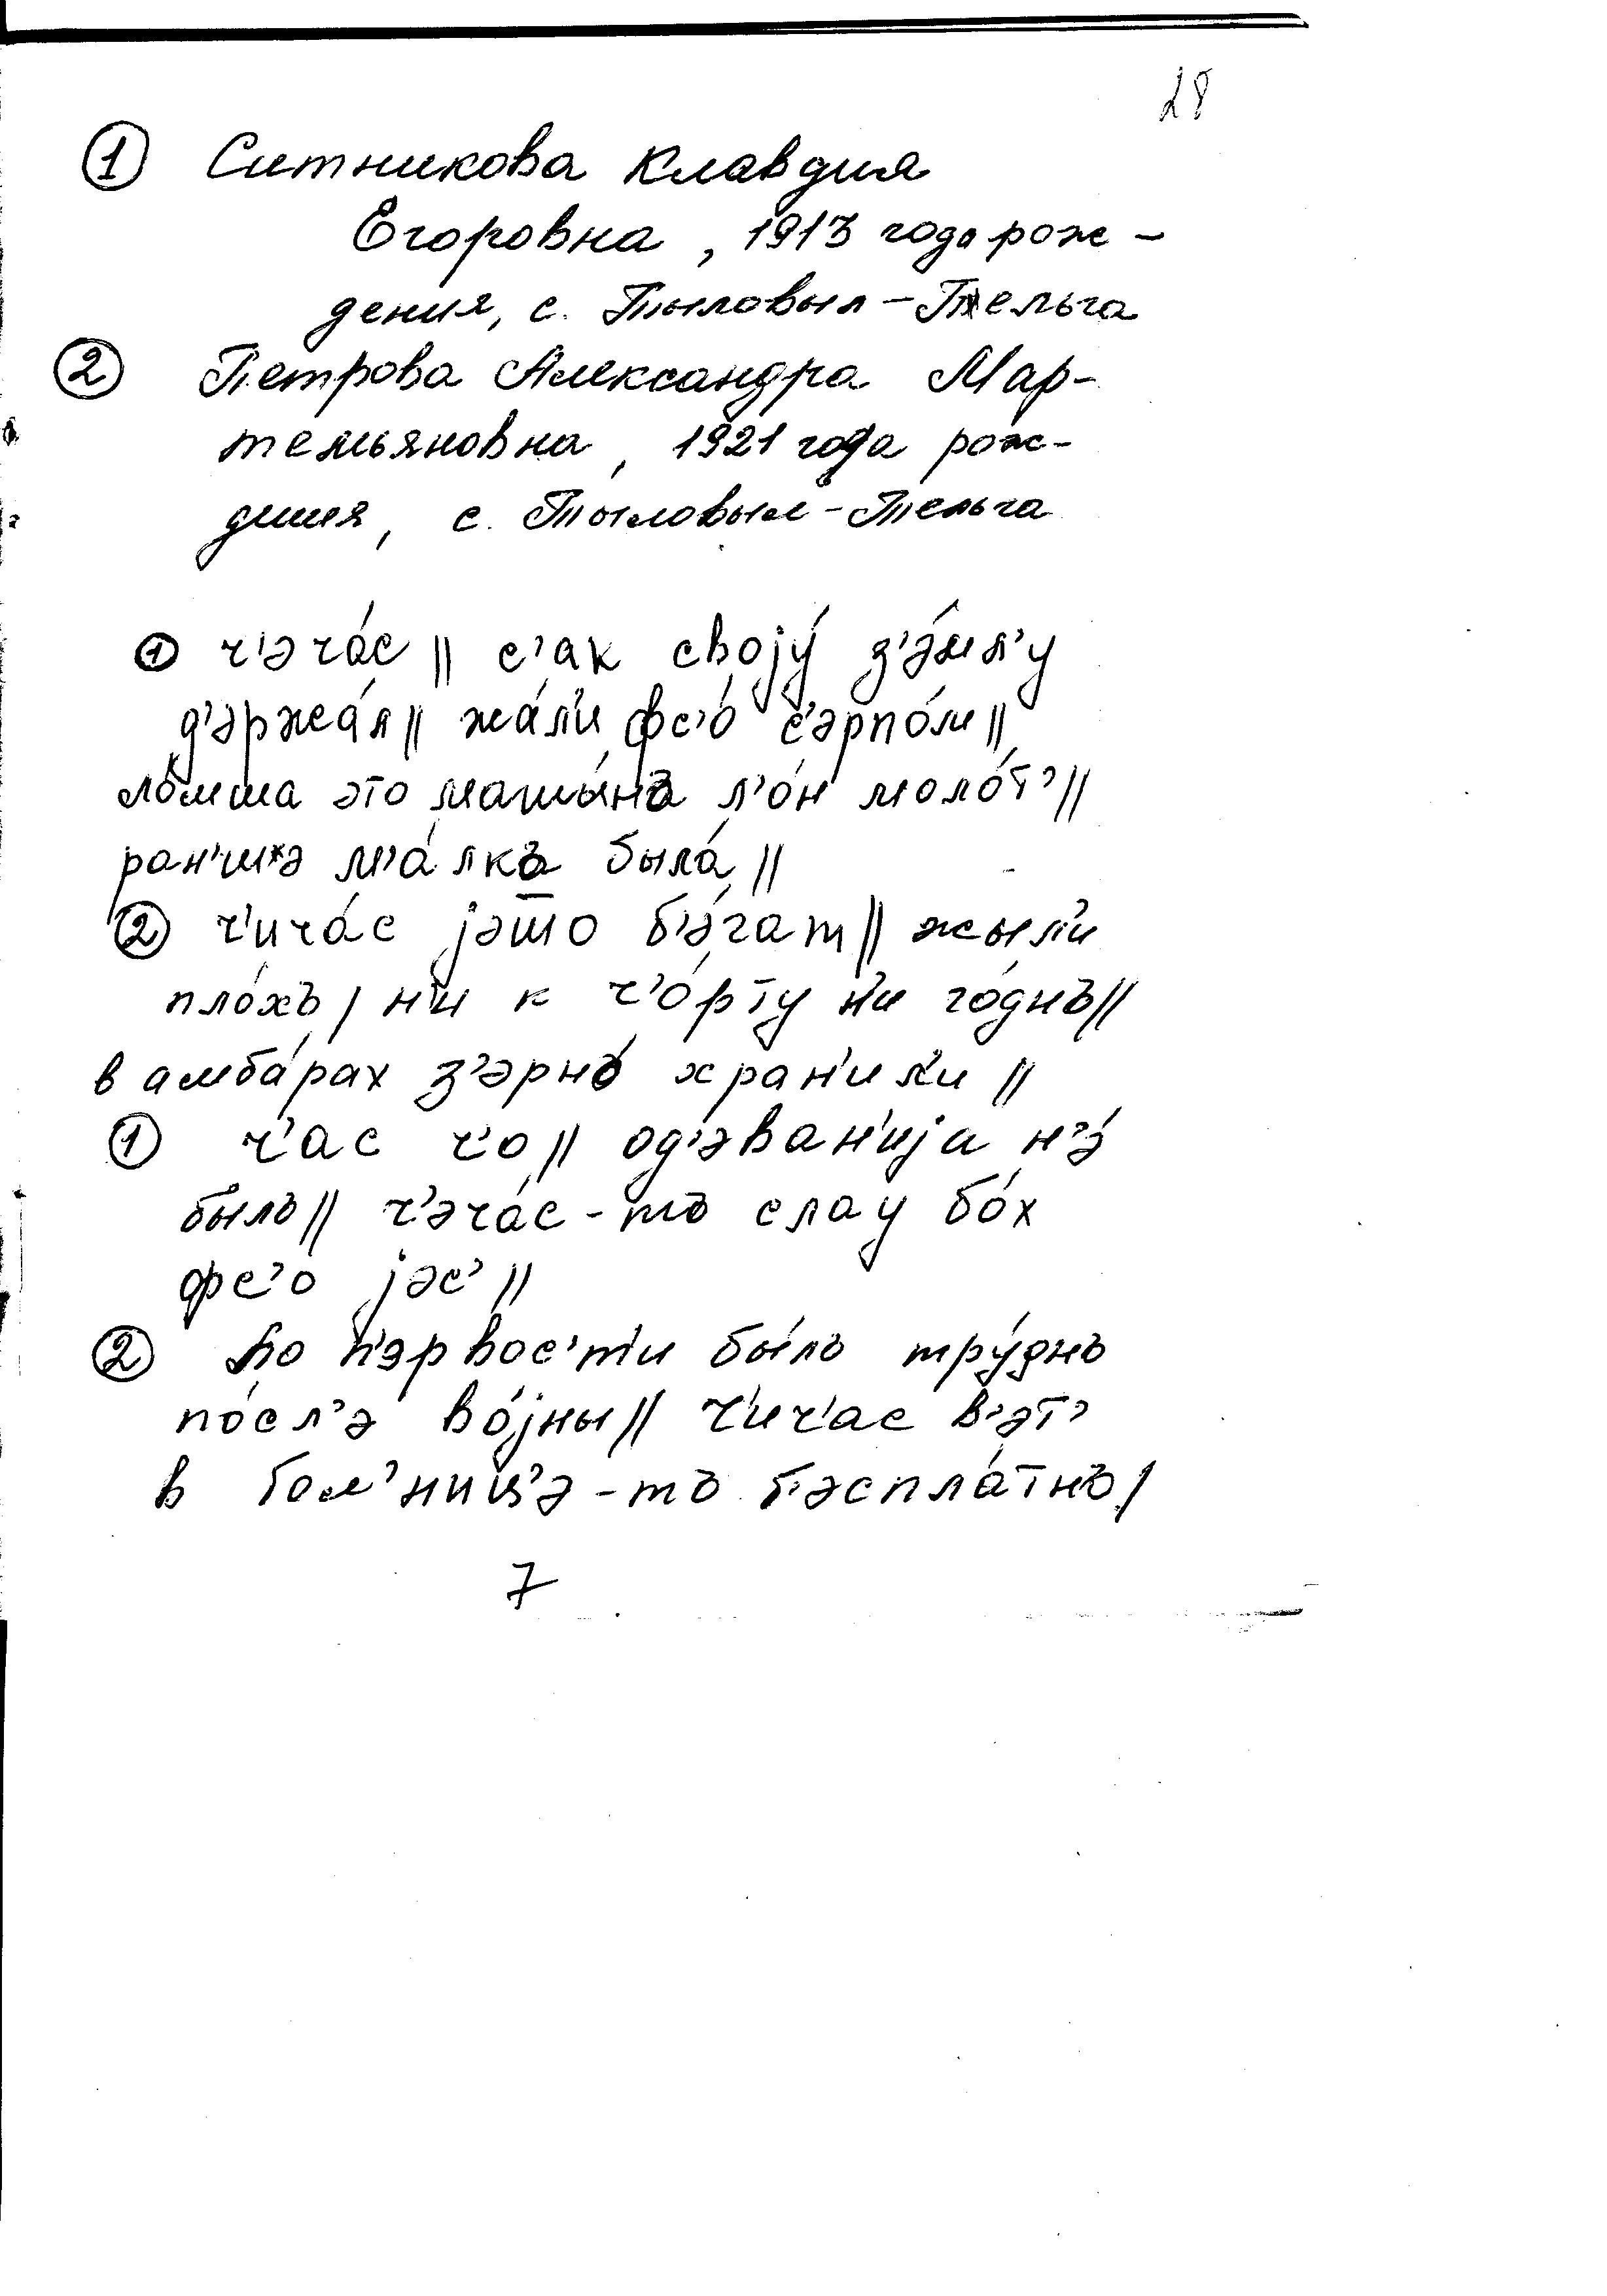 28
① Ситникова Клавдия
Егоровна, 1913 года рож-
дения, с. Тыловыл-Пельга
② Петрова Александра Мар-
темьяновна, 1921 года рож-
дения, с. Тыловыл-Пельга
① ч'эча́с || с'ак своjу́ з'э́мл'у
д'эржа́л || жа́л'и фс'о́ с'эрпо́м ||
это машы́на л'о́н моло́т' ||
ран'шэ м'а́лкъ была́ ||
② ч'ича́с jэшо б'э́гат || жыл'и
пло́хъ | н'и к ч'о́рту н'и го́днъ ||
в амба́рах з'эрно́ хран'ил'и ||
① ч'ас ч'о || од'эван'иjа н'э́
былъ || ч'эча́с-тъ слау бо́х
фс'о jэс' ||
② По п'эрвос'т'и бы́лъ тру́днъ
по́сл'э во́jны || ч'ич'ас в'эт'
в бол'ниц'э-тъ б'эспла́тнъ |
7